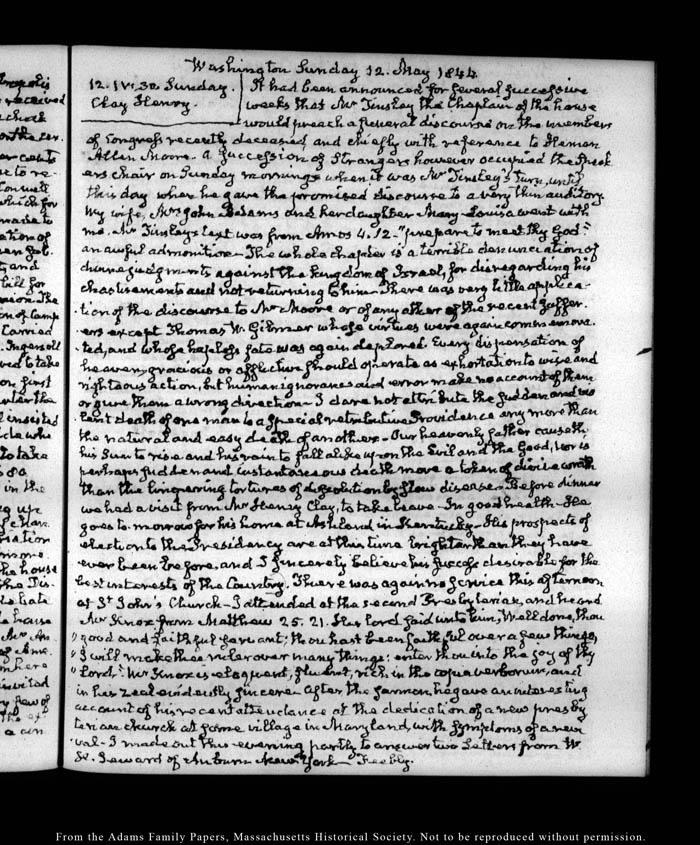 Washington Sunday 12. May 1844
12. IV:30. Sunday.
Clay Henry.
It had been announced for several successive
weeks that Mr Tinsley the Chaplain of the house
would preach a funeral discourse on the members
of Congress recently deceased and chiefly with reference to Heman
Allen Moore. A succession of Strangers however occupied the Speak-
ers chair on Sunday mornings when it was Mr Tinsley's turn, until
this day when he gave the promised discourse to a very thin auditory
My wife, Mrs John Adams and her daughter Mary Louisa went with
me. Mr Tinsley's text was from Amos 4.12. "prepare to meet thy God."
an awful admonition— The whole chapter is a terrible denunciation of
divine judgments against the kingdom of Israel, for disregarding his
chastisements and not returning to him— There was very little applica-
tion of the discourse to Mr Moore or of any other of the recent suffer-
ers except Thomas W. Gilmer whose virtues were again commemora-
ted, and whose hapless fate was again deplored. Every dispensation of
heaven, gracious or afflictive should operate as exhortation to wise and
righteous action, but human ignorance and error make no account of them
or give them a wrong direction— I dare not attribute the sudden and vio-
lent death of one man to a special retributive Providence any more than
the natural and easy death of another— Our heavenly father causeth
his Sun to rise and his rain to fall alike upon the Evil and the Good; nor is
perhaps sudden and instantaneous death more a token of divine wrath
than the lingering tortures of dissolution by slow disease— Before dinner
we had a visit from Mr Henry Clay, to take leave— In good health— He
goes to-morrow for his home at Ashland in Kentucky— His prospects of
election to the Presidency are at this time brighter than they have
ever been before, and I sincerely believe his success desirable for the
best interests of the Country. There was again no service this afternoon
at St John's Church— I attended at the second Presbyterian, and heard
Mr Knox from Matthew 25. 21. His lord said unto him, Well done, thou
" good and faithful servant; thou hast been faithful over a few things,
" I will make thee ruler over many things: enter thou into the joy of thy
" Lord." Mr Knox is eloquent, fluent, rich in the copia verborum, and
in his zeal evidently sincere— After the sermon, he gave an interesting
account of his recent attendance at the dedication of a new presby-
terian church at some village in Maryland, with symptoms of a revi-
val— I made out this evening partly to answer two Letters from W.
H. Seward of Auburn New-York— Feebly.
From the Adams Family Papers, Massachusetts Historical Society. Not to be reproduced without permission.